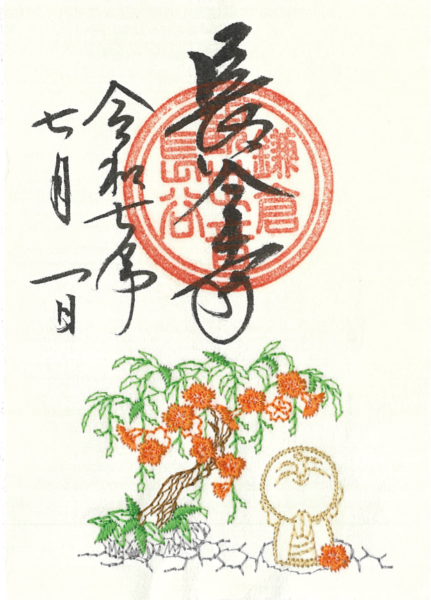 長谷寺
鎌倉
長谷
令和七年
七月 一日